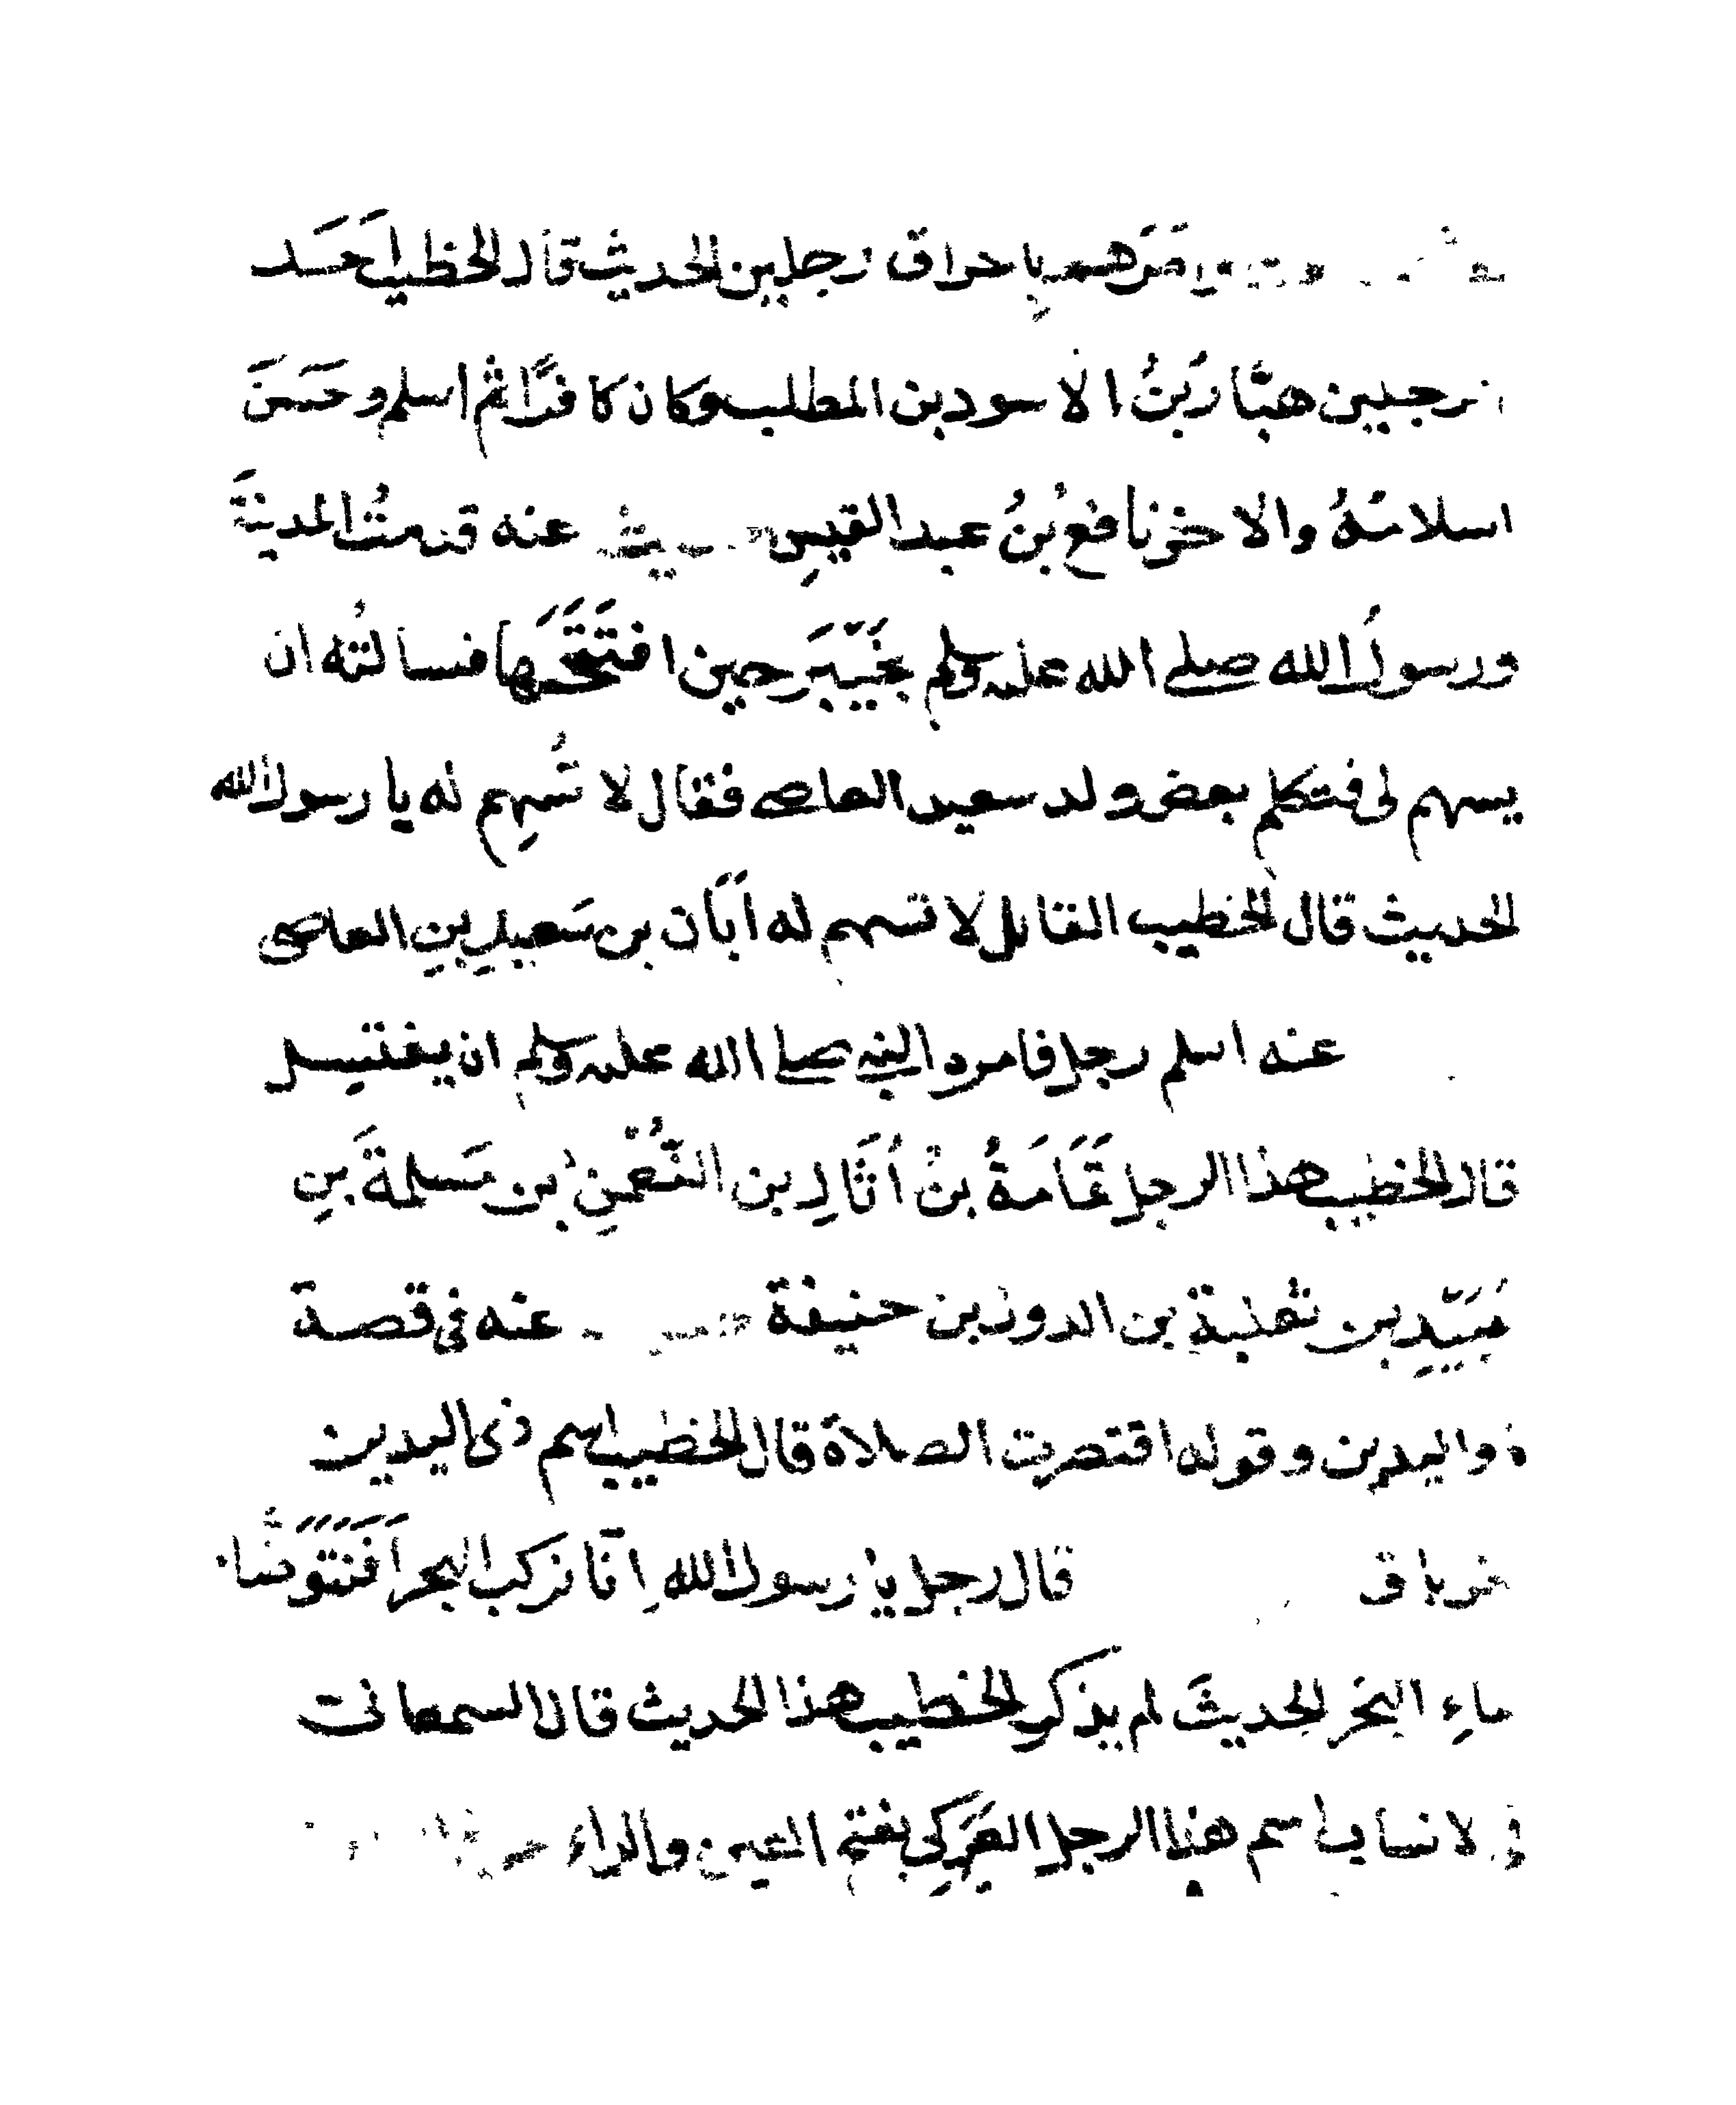 وَمَرَهم باحراق رجلين الحديث قال الخطيب اَحَد
الرجلين هبَّارُ بْنُ الاسود بن المطلب وكان كافرًا ثم اسلم وحَسَنَ
اسلامُهُ والاخر نافعُ بْنُ عبد القيسِ حديث عنه قدمتُ المدينةَ
ورسولُ الله صلى الله عليه وسلم بخَيْبَرَ حين افتَتَحَها فسالتُه ان
يسهم لى فتكلم بعض ولد سعيد العاصى فقال لا تُسْهِم له يا رسول الله
الحديث قال الخطيب القايل لا تسهم له اَبَان بن سَعيدِ بنِ العاصى
عنه اسلم رجل فامره النبى صلى الله عليه وسلم ان يغتسل
قال الخطيب هذا الرجل ثُمَامَةُ بنُ أُثَالِ بن النُّعْمنِ بن مَسلمةَ بنِ
عُبَيِّدِ بن ثعلبة بن الدول بن حنيفة عنه فى قصة
ذو اليدين وقوله اقتصرت الصلاة قال الخطيب اسم ذى اليدين
خرباق قال رجل يا رسول الله اِنّا نركب البحر اَفَنَتَوَضَّا
ماءِ البَحْر الحديثَ لم يذكر الخطيب هذا الحديث قال السمعانى
فى الانساب اسم هذا الرجل العَرَكِى بفتح العين والراء